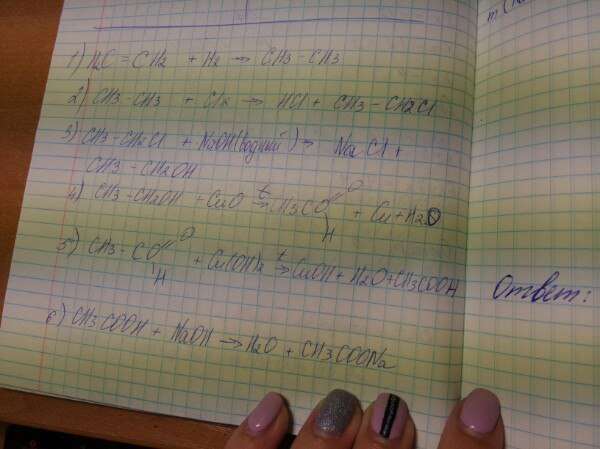 1) H2C = CH2 + H2 → CH3 - CH3
2) CH3 - CH3 + Cl2 → HCl + CH3 - CH2Cl
3) CH3 - CH2Cl + NaOH (водный) → NaCl +
CH3 - CH2OH
4) CH3 - CH2OH + CuO t→ CH3CO O H + Cu + H2O
5) CH3 - CO O H + Cu(OH)2 t→ CuOH + H2O + CH3COOH
6) CH3COOH + NaOH → H2O + CH3COONa
Ответ: